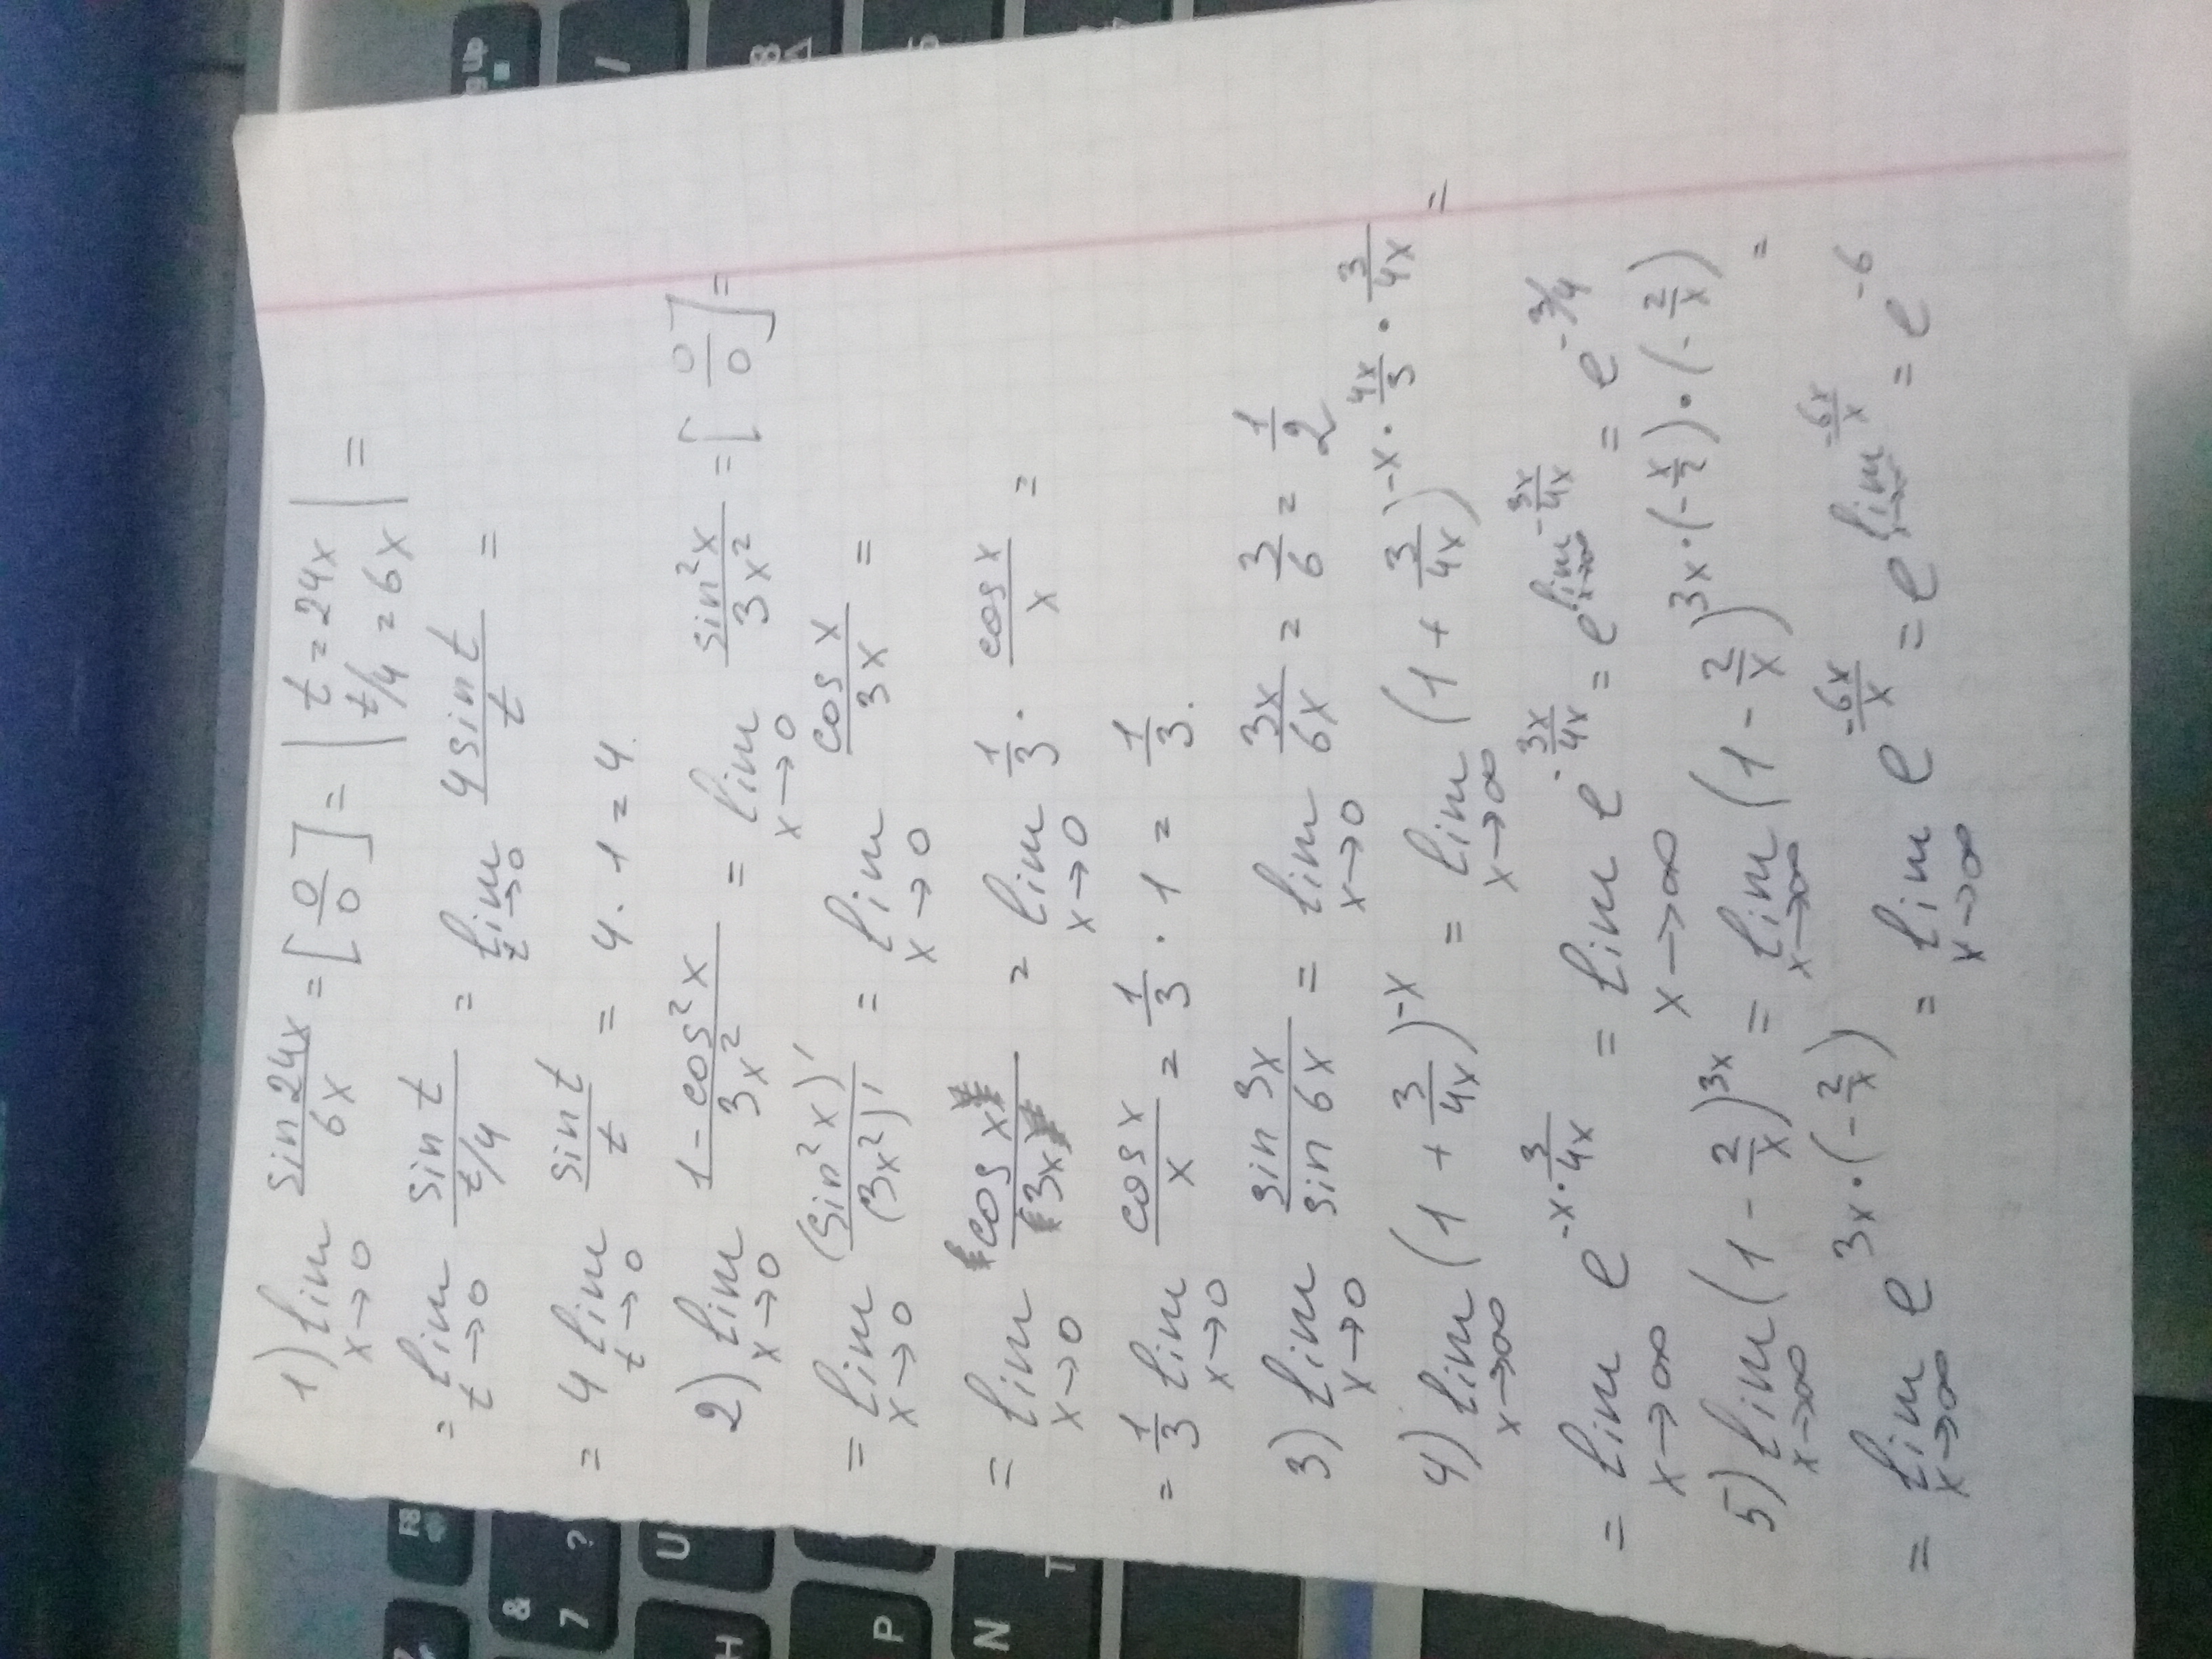 1) lim x→0 sin 24x / 6x = [0/0] = | t = 24x t/4 = 6x | =
= lim t→0 sin t / t/4 = lim t→0 4 sin t / t =
= 4 lim t→0 sin t / t = 4 · 1 = 4.
2) lim x→0 1 - cos²x / 3x² = lim x→0 sin²x / 3x² = [0/0] =
= lim x→0 (sin²x)' / (3x²)' = lim x→0 cos x / 3x =
= lim x→0 cos x / 3x = lim x→0 1/3 · cos x / x =
= 1/3 lim x→0 cos x / x = 1/3 · 1 = 1/3.
3) lim x→0 sin 3x / sin 6x = lim x→0 3x / 6x = 3/6 = 1/2
4) lim x→∞ (1 + 3/4x)^-x = lim x→∞ (1 + 3/4x)^-x · 4x/3 · 3/4x =
= lim x→∞ e^-x · 3/4x = lim x→∞ e^-3x/4x = e^lim x→∞ -3x/4x = e^-3/4
5) lim x→∞ (1 - 2/x)^3x = lim x→∞ (1 - 2/x)^3x · (-x/2) · (-2/x) =
= lim x→∞ e^3x · (-2/x) = lim x→∞ e^-6x/x = e^lim x→∞ -6x/x = e^-6
F8
&
7
?
U
H
P
N
T